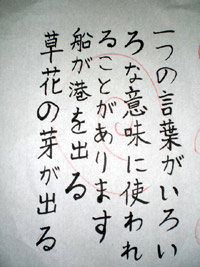 一つの言葉がいろい
ろな意味に使われ
ることがあります
船が港を出る
草花の芽が出る